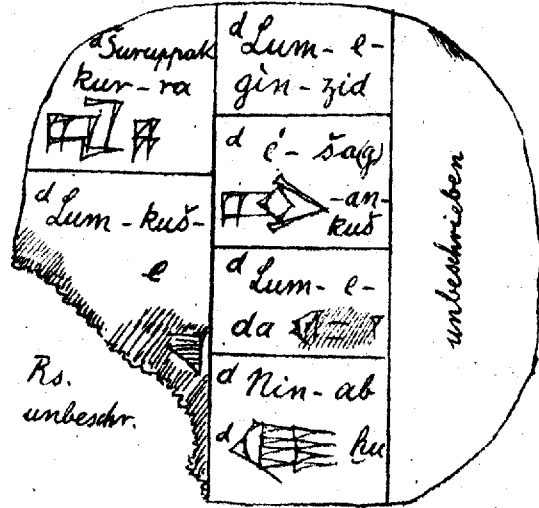 ᵈŠuruppak
kur-ra
ᵈLum-kuš-
e
Rs.
unbeschr.
ᵈLum-e-
gìn-zid
ᵈé-ša(g)
-an-
kuš
ᵈLum-e-
da
ᵈNin-ab
ᵈ ḫu
unbeschrieben